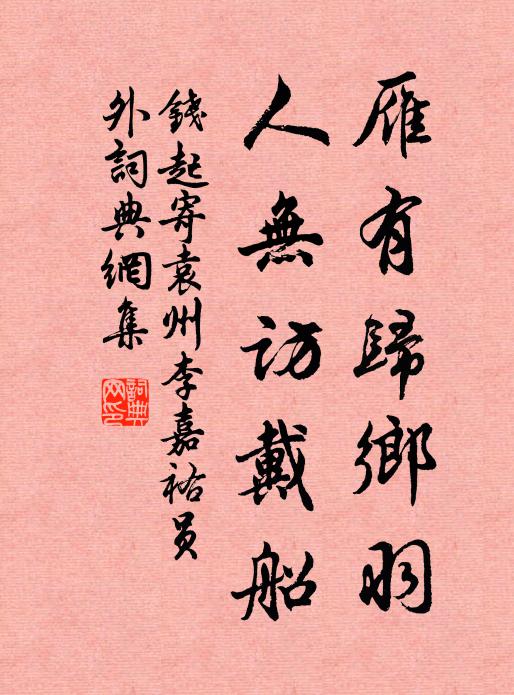 雁有歸鄉羽
人無訪戴船
錢起寄袁州李嘉祐員
外詞典網集
詞典
网印